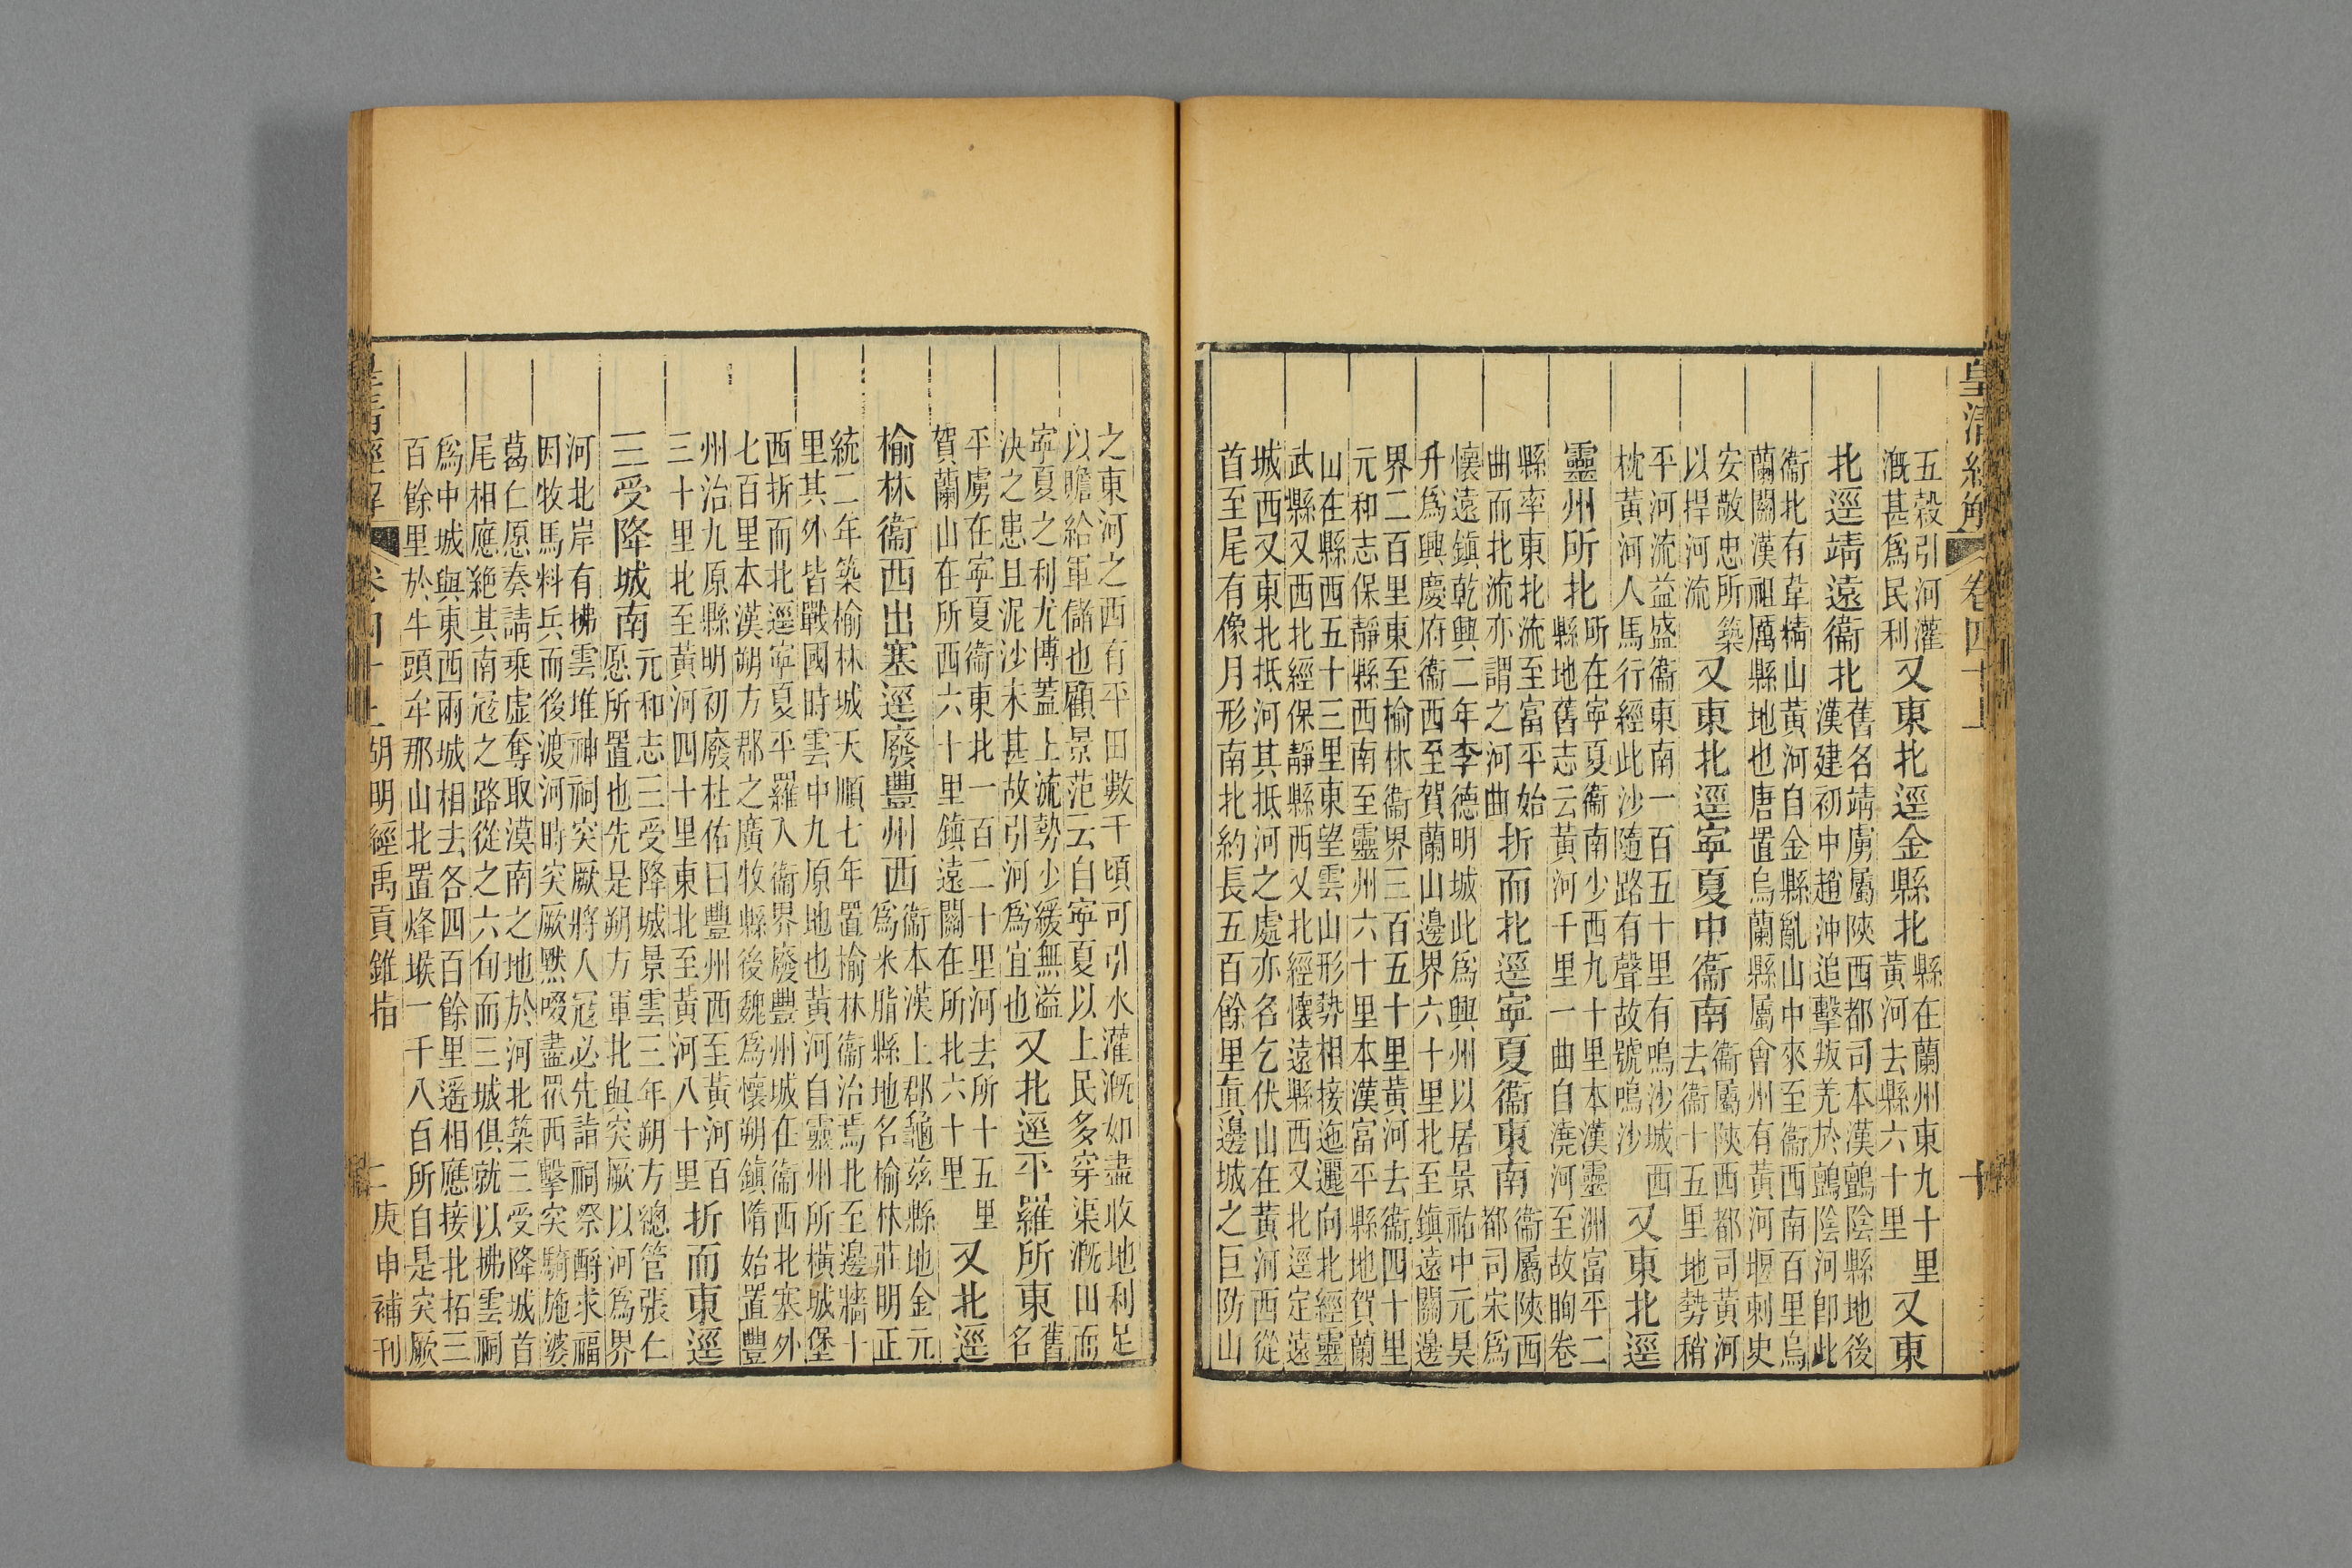 皇清經解 卷四十上 十
五穀引河灌
漑甚爲民利
又東北逕金縣北
縣在蘭州東九十里
黃河去縣六十里
又東
北逕靖遠衞北
舊名靖虜屬陝西都司本漢鸇陰縣地後
漢建初中趙沖追擊叛羌於鸇陰河卽此
衞北有葦精山黃河自金縣亂山中來至衞西南百里烏
蘭關漢祖厲縣地也唐置烏蘭縣屬會州有黃河堰刺史
安敬忠所築
以捍河流
又東北逕寧夏中衞南
衞屬陝西都司黃河
去衞十五里地勢稍
平河流益盛衞東南一百五十里有鳴沙城西
枕黃河人馬行經此沙隨路有聲故號鳴沙
又東北逕
靈州所北
所在寧夏衞南少西九十里本漢靈洲富平二
縣地舊志云黃河千里一曲自澆河至故眴卷
縣率東北流至富平始
曲而北流亦謂之河曲
折而北逕寧夏衞東南
衞屬陝西
都司宋爲
懷遠鎮乾興二年李德明城此爲興州以居景祐中元昊
升爲興慶府衞西至賀蘭山邊界六十里北至鎮遠關邊
界二百里東至榆林衞界三百五十里黃河去衞四十里
元和志保靜縣西南至靈州六十里本漢富平縣地賀蘭
山在縣西五十三里東望雲山形勢相接迤邐向北經靈
武縣又西北經保靜縣西又北經懷遠縣西又北逕定遠
城西又東北抵河其抵河之處亦名乞伏山在黃河西從
首至尾有像月形南北約長五百餘里眞邊城之巨防山
之東河之西有平田數千頃可引水灌漑如盡收地利足
以贍給軍儲也顧景范云自寧夏以上民多穿渠漑田而
寧夏之利尤博蓋上流勢少緩無溢
決之患且泥沙未甚故引河爲宜也
又北逕平羅所東
舊
名
平虜在寧夏衞東北一百二十里河去所十五里
賀蘭山在所西六十里鎮遠關在所北六十里
又北逕
榆林衞西出塞逕廢豐州西
衞本漢上郡龜茲縣地金元
爲米脂縣地名榆林莊明正
統二年築榆林城天順七年置榆林衞治焉北至邊牆十
里其外皆戰國時雲中九原地也黃河自靈州所橫城堡
西折而北逕寧夏平羅入衞界廢豐州城在衞西北塞外
七百里本漢朔方郡之廣牧縣後魏爲懷朔鎮隋始置豐
州治九原縣明初廢杜佑曰豐州西至黃河百
三十里北至黃河四十里東北至黃河八十里
折而東逕
三受降城南
元和志三受降城景雲三年朔方總管張仁
愿所置也先是朔方軍北與突厥以河爲界
河北岸有拂雲堆神祠突厥將入寇必先詣祠祭酹求福
因牧馬料兵而後渡河時突厥默啜盡眾西擊突騎施婆
葛仁愿奏請乘虛奪取漠南之地於河北築三受降城首
尾相應絕其南寇之路從之六旬而三城俱就以拂雲祠
爲中城與東西兩城相去各四百餘里遙相應接北拓三
百餘里於牛頭牟那山北置烽堠一千八百所自是突厥
皇清經解 卷四十上 胡明經禹貢錐指 二 庚申補刊